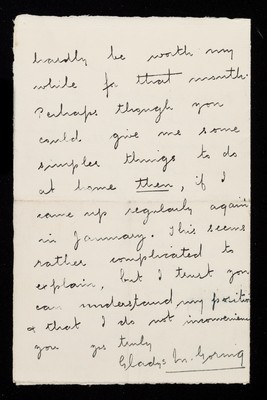 hardly be worth my
while for that month.
Perhaps though you
could give me some
simple things to do
at home then, if I
came up regularly again
in January. This seems
rather complicated to
explain, but I trust you
can understand my position
& that I do not inconvenience
you yrs truly
Gladys M.